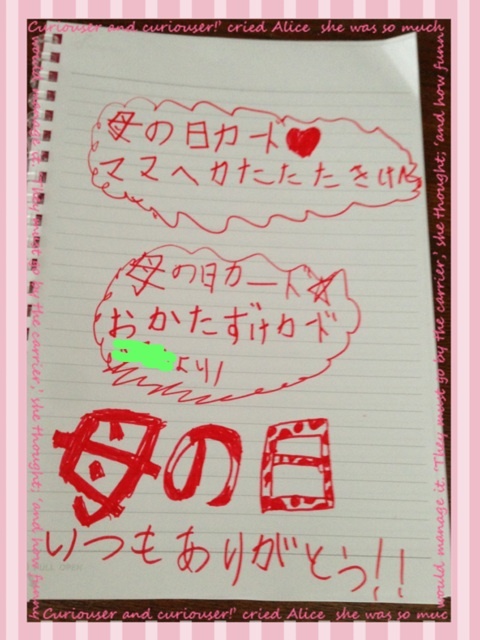 Curiouser and curiouser!' cried Alice she was so much
母の日カード♥
ママへカたたたきけん
母の日カード☆
おかたずけカド
より
母の日
いつもありがとう!!
ULL OPEN
'Curiouser and curiouser!' cried Alice she was so muc
would manage it. 'They must go by the carrier,' she thought; 'and how funny
would manage it. 'They must go by the carrier,' she thought; 'and how funny